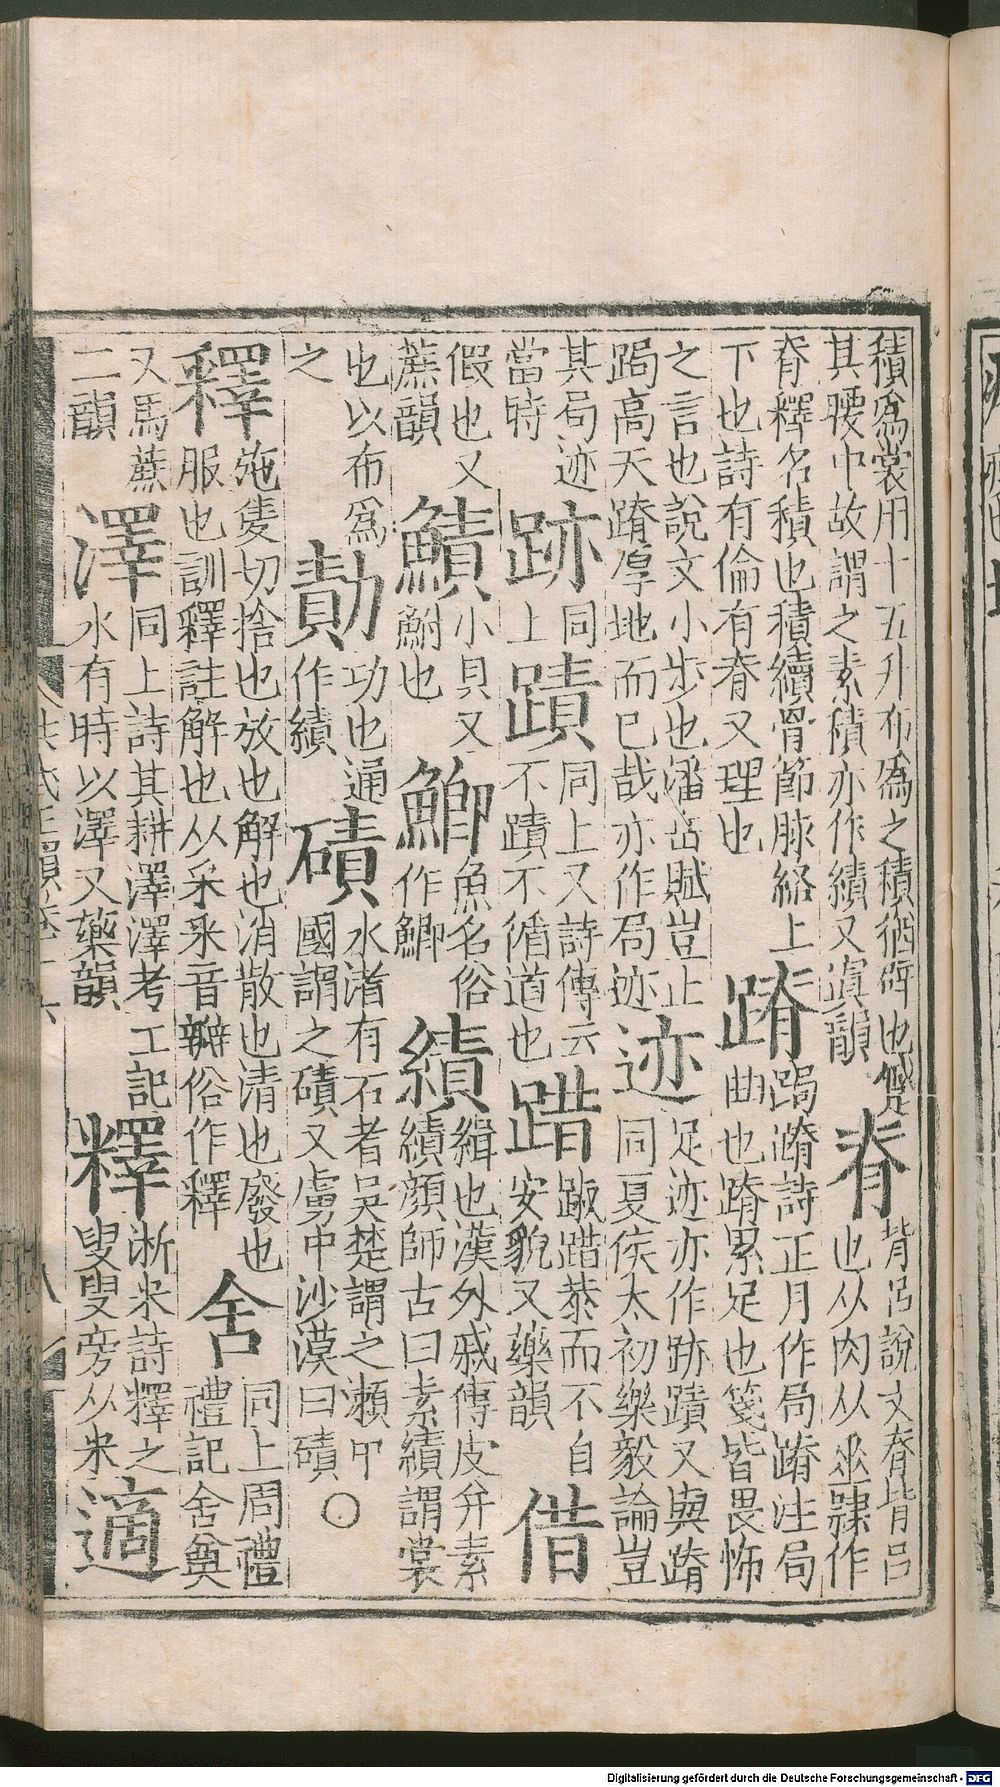 積爲裳用十五升布爲之積猶辟也辟
其腰中故謂之素積亦作績又寘韻
脊
背呂說文脊背呂
也从肉从𠦬隷作
脊釋名積也積續骨節脉絡上
下也詩有倫有脊又理也
蹐
跼蹐詩正月作局蹐注局
曲也蹐累足也箋皆畏怖
之言也說文小步也潘岳賦豈止
跼高天蹐厚地而已哉亦作局迹
迹
足迹亦作跡蹟又與蹐
同夏侯太初樂毅論豈
其局迹
當時
跡
同
上
蹟
同上又詩傳云
不蹟不循道也
踖
踧踖恭而不自
安貌又藥韻
借
假也又
蔗韻
鰿
小貝又
鮒也
鯽
魚名俗
作鯽
績
緝也漢外戚傳皮弁素
績顔師古曰素績謂裳
也以布爲
之
勣
功也通
作績
磧
水渚有石者吳楚謂之瀨中
國謂之磧又虜中沙漠曰磧
〇
釋
施隻切捨也放也解也消散也清也廢也
服也訓釋註解也从釆釆音辦俗作釋
舍
同上周禮
禮記舍奠
又馬蔗
二韻
澤
同上詩其耕澤澤考工記
水有時以澤又藥韻
釋
淅米詩釋之
叟叟旁从米
適
Digitalisierung gefördert durch die Deutsche Forschungsgemeinschaft - DFG